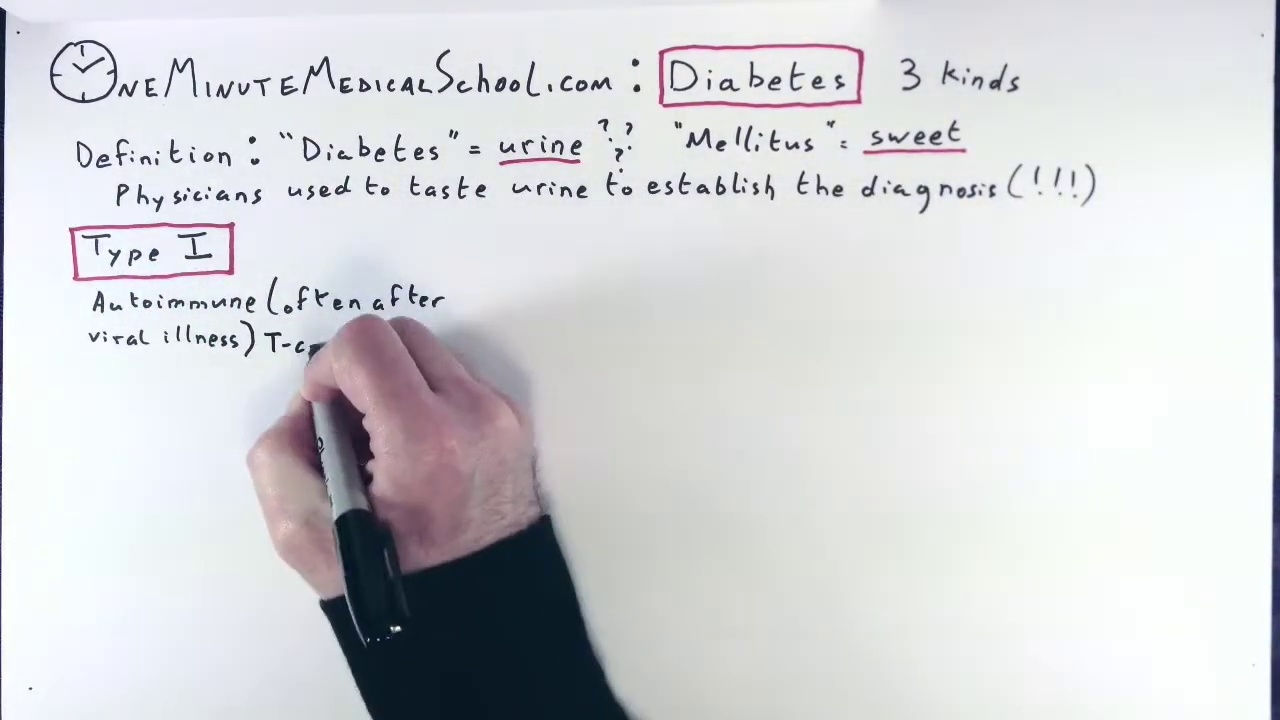 OneMinuteMedicalSchool.com : Diabetes 3 kinds
Definition : "Diabetes" = urine ??? "Mellitus" = sweet
Physicians used to taste urine to establish the diagnosis (!!!)
Type I
Autoimmune (often after
viral illness) T-c